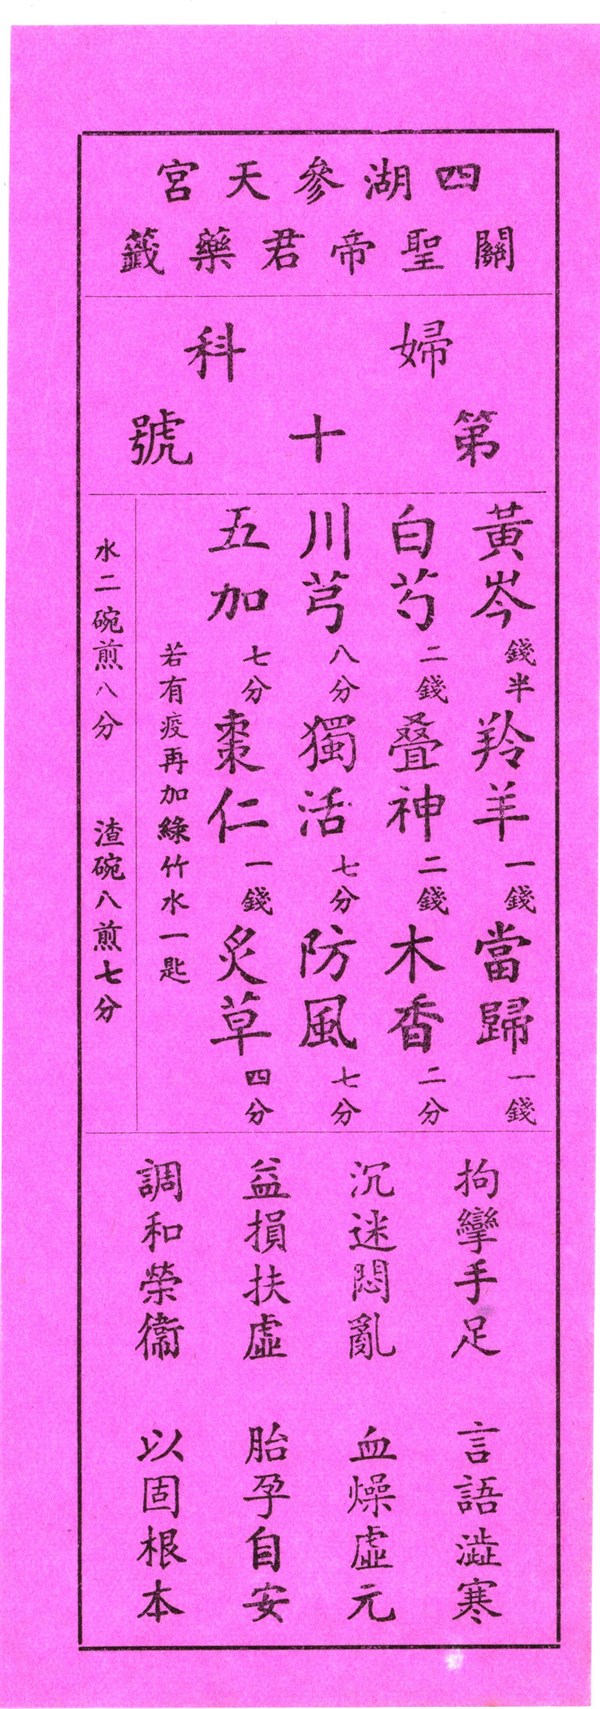 四湖參天宮
關聖帝君藥籤
婦科
第十號
黃岑錢半羚羊一錢當歸一錢
白芍二錢叠神二錢木香二分
川芎八分獨活七分防風七分
五加七分棗仁一錢炙草四分
若有疫再加綠竹水一匙
水二碗煎八分 渣碗八煎七分
拘攣手足 言語澁寒
沉迷悶亂 血燥虛元
益損扶虛 胎孕自安
調和榮衞 以固根本